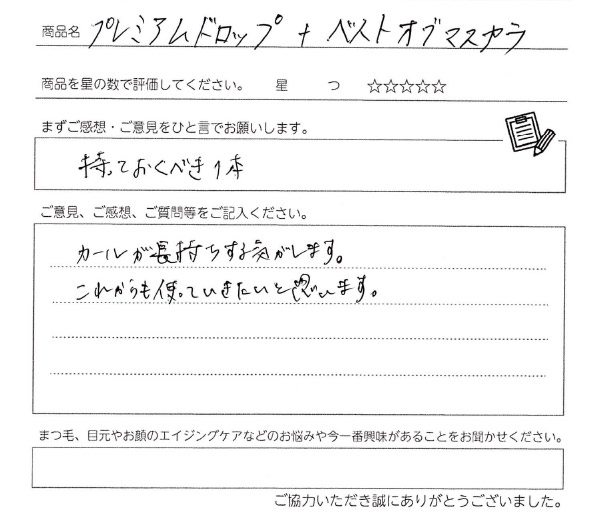 商品名 プレミアムドロップ + ベストオブマスカラ
商品を星の数で評価してください。 星 つ ☆☆☆☆☆
まずご感想・ご意見をひと言でお願いします。
持っておくべき1本
ご意見、ご感想、ご質問等をご記入ください。
カールが長持ちする気がします。
これからも使っていきたいと思います。
まつ毛、目元やお顔のエイジングケアなどのお悩みや今一番興味があることをお聞かせください。
ご協力いただき誠にありがとうございました。